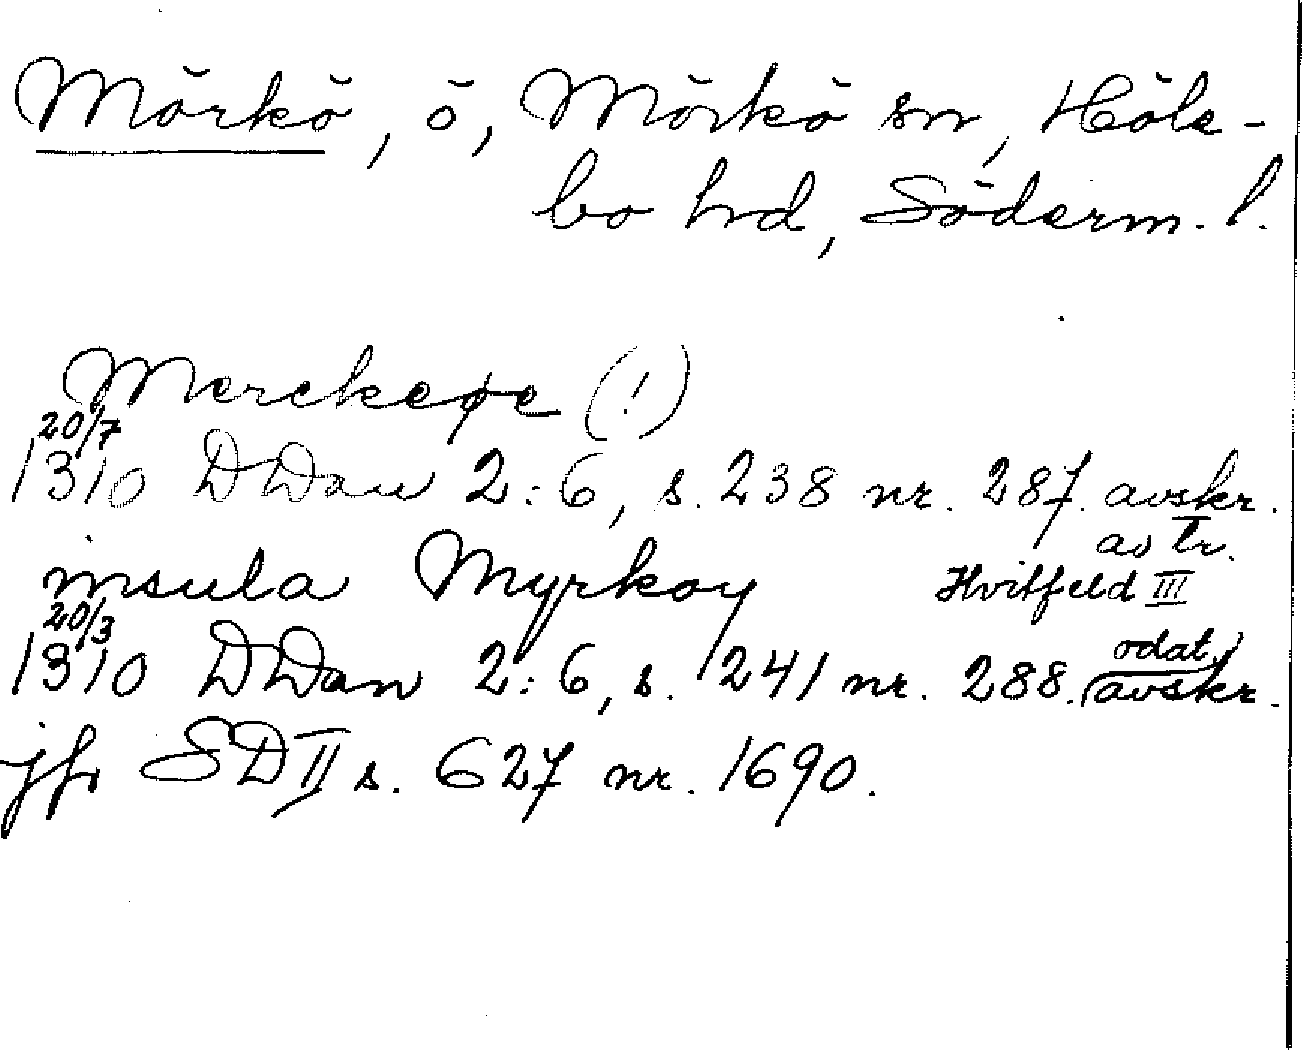 Mörkö, ö, Mörkö sn, Höle-
bo hrd, Söderm. l.
Merckeøe (!)
20/7
1310 DDan 2:6, s. 238 nr. 287. avskr.
av tr.
insula Myrkoy Hvitfeld III
20/3
1310 DDan 2:6, s. 241 nr. 288. odat.
avskr.
jfr SD II s. 627 nr. 1690.